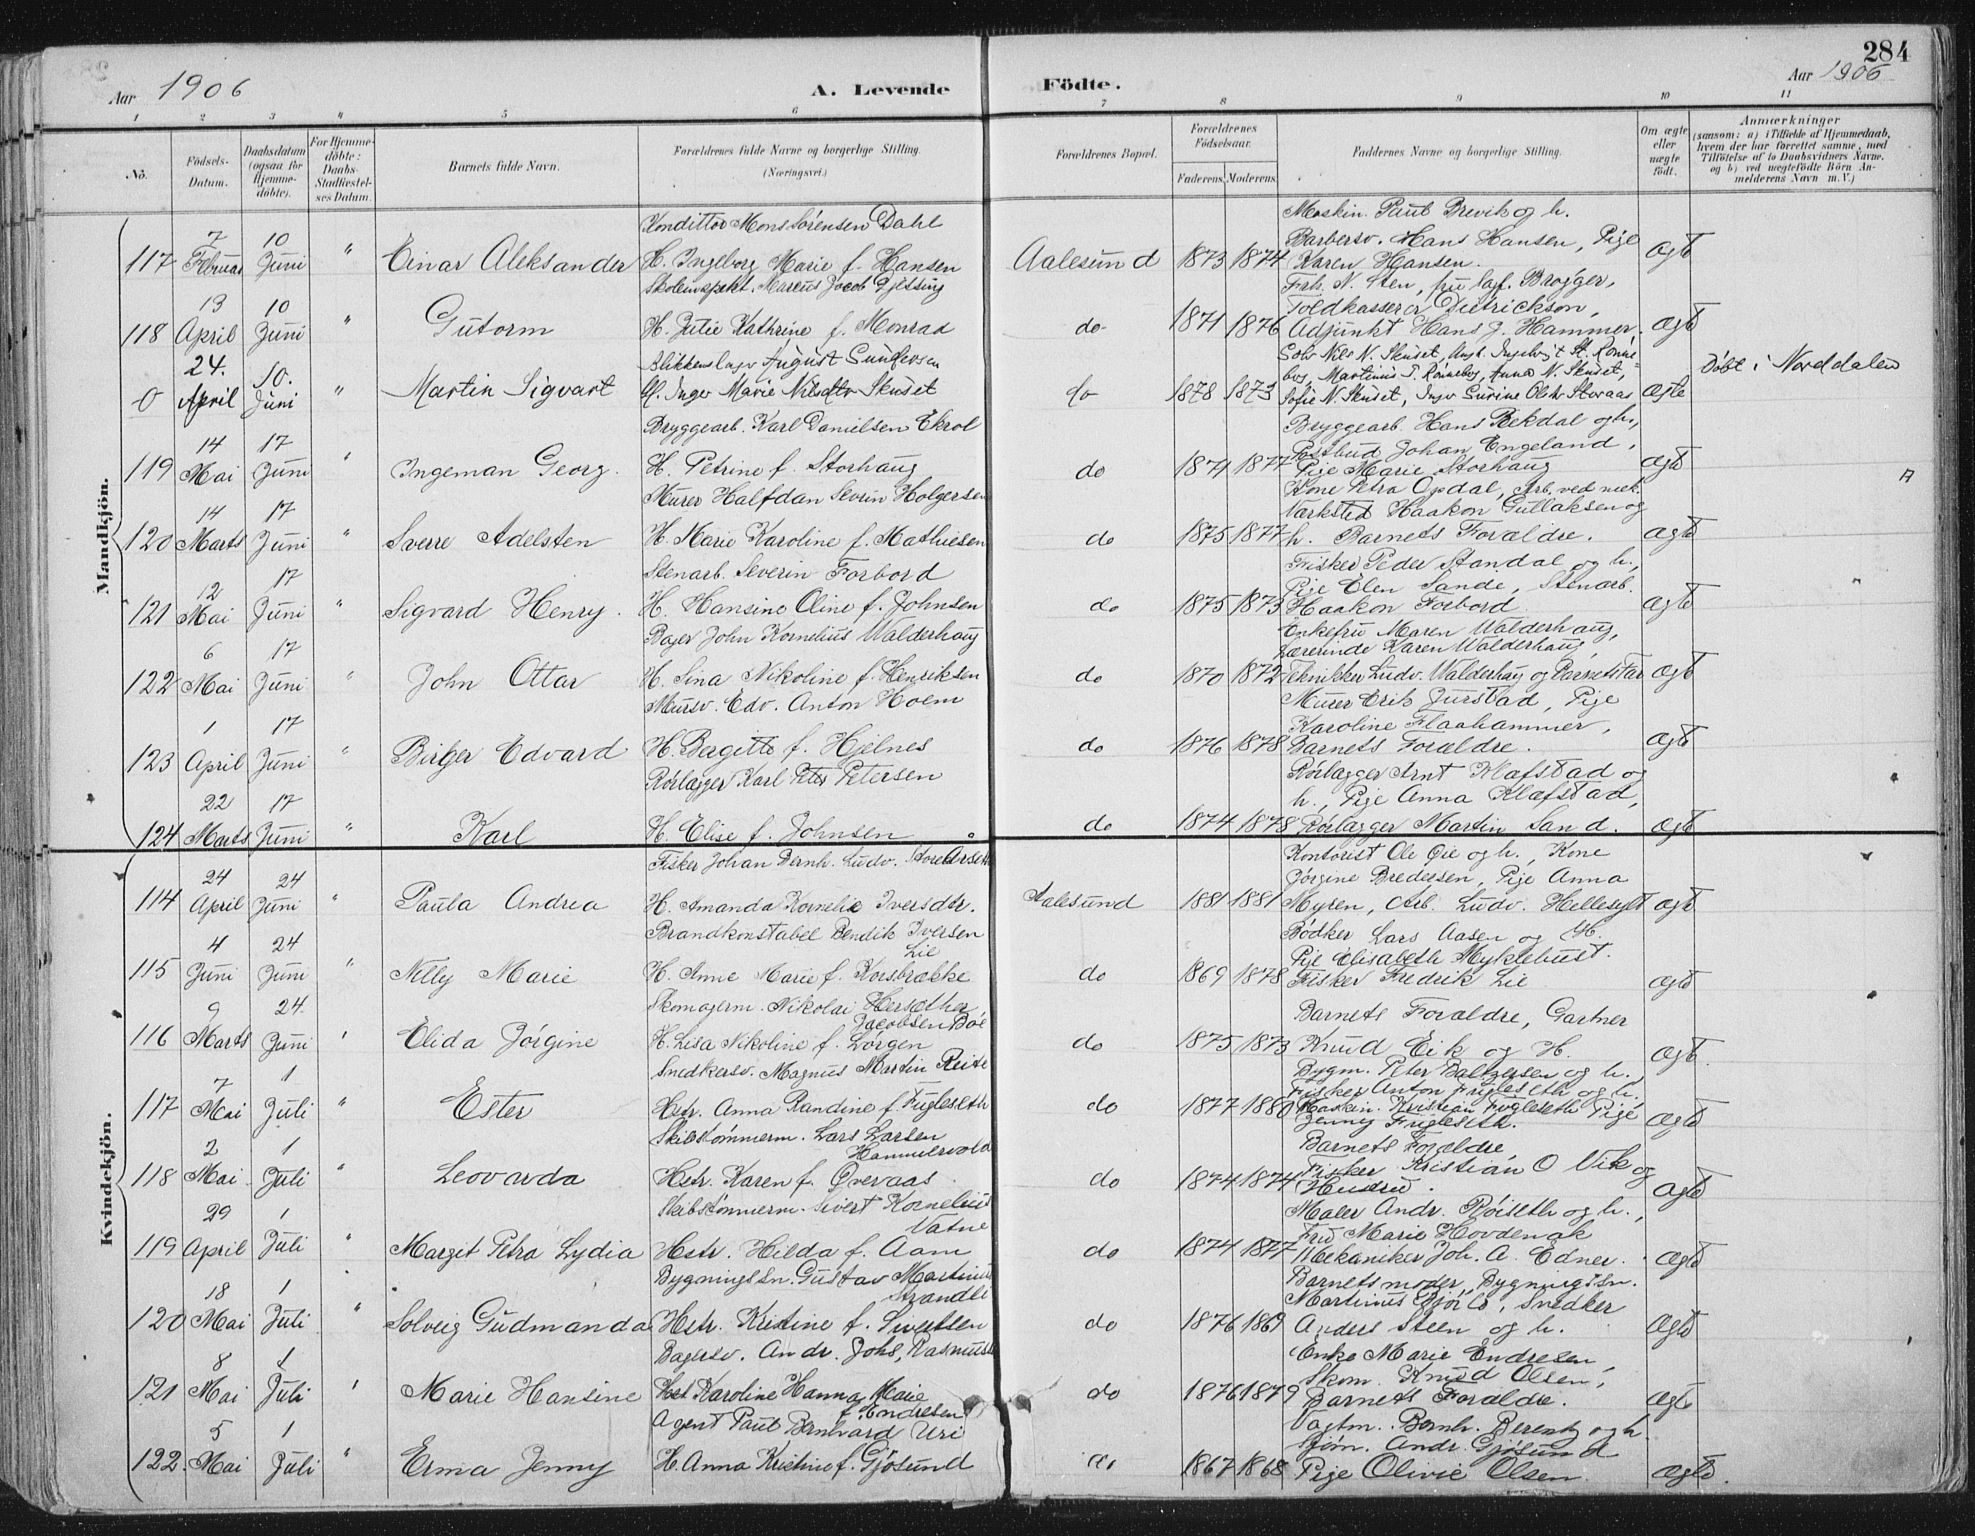 284
Aar 1906
A. Levende Födte.
Aar 1906
1 2 3 4 5 6 7 8 9 10 11
No.
Födsels-Datum.
Daabsdatum (ogsaa for Hjemmedöbte).
For Hjemmedöbte: Daabs-Stadfæstelses Datum.
Barnets fulde Navn.
Forældrenes fulde Navne og borgerlige Stilling.
(Næringsvei.)
Forældrenes Bopæl.
Forældrenes Födselsaar.
Faderens. Moderens.
Faddernes Navne og borgerlige Stilling.
Om ægte eller uægte födt.
Anmærkninger
(saasom: a) i Tilfælde af Hjemmedaab, hvem der har forrettet samme, med Tilföielse af to Daabsvidners Navne, og b) ved uægtefödte Börn Anmelderens Navn m. V.)
Mandkjön.
Konditor Mons Sörensen Dahl
Maskin. Paul Brevik og h.
7 10
Barbersv. Hans Hansen, Pige
117 Februar Juni " Einar Aleksander H. Ingeborg Marie f. Hansen Aalesund 1873 1874 Karen Hansen. ægte
Skoleinspekt. Marcus Jacob Gjelsing
N. Sten, Brøgger,
13 10
Toldkasserer Dietrickson,
118 April Juni " Gutorm H. Julie Kathrine f. Monrad do 1871 1876 Adjunkt Hans J. Hammer. ægte
Blikkenslager August Gundersen
24. 10.
0 April Juni " Martin Sigvart H. Inger Marie Nilsdtr Skuset do 1878 1873 Sofie N. Skuset, ægte Döbt i Norddalen
Bryggearb. Karl Danielsen Ekrol
Bryggearb. Hans Rekdal og h.,
14 17
Postbud Johan Engeland,
119 Mai Juni " Ingeman Georg. H. Petrine f. Storhaug do 1871 1877 Pige Marie Storhaug ægte
Murer Halfdan Severin Holgersen
Kone Petra Opdal, Arb. ved mek.
14 17
Værksted Haakon Gullaksen og
120 Marts Juni " Sverre Adelsten H. Marie Karoline f. Mathiesen do 1875 1877 h. Barnets Foraldre. ægte
Stenarb. Severin Forbord
Fisker Peder Standal og h.,
12 17
Pige Elen Sande, Stenarb.
121 Mai Juni " Sigvard Henry. H. Hansine Oline f. Johnsen do 1875 1873 Haakon Forbord ægte
Bager John Kornelius Walderhaug
Enkefru Maren Walderhaug,
6 17
Lærerinde Karen Walderhaug,
122 Mai Juni " John Ottar H. Sina Nikoline f. Henriksen do 1870 1872 Tekniker Ludv. Walderhaug og Barnets Far ægte
Mursv. Edv. Anton Holm
Murer Erik Jurstad, Pige
1 17
Karoline Flaahammer,
123 April Juni " Birger Edvard H. Bergitte f. Hjelnes do 1876 1878 Barnets Foraldre. ægte
Rörlægger Karl Peter Petersen
Rörlægger Arnt Klafstad og
22 17
h., Pige Anna Klæfstad,
124 Marts Juni " Karl H. Elise f. Johnsen do 1874 1878 Rörlægger Martin Sand. ægte
Kvindekjön.
Fisker Johan Bernh. Ludv.
Kontorist Ole Øie og h., Kone
24 24
Jørgine Bredersen, Pige Anna
114 April Juni " Paula Andrea H. Amanda Kornelie Iversdtr. Aalesund 1881 1881 Myren, Arb. Ludv. Hellesylt ægte
Brandkonstabel Bendik Iversen Lie
Bødker Lars Aasen og H.
4 24
Pige Elisabeth Myklebust.
115 Juni Juni " Nelly Marie H. Anne Marie f. Korsbrekke do 1869 1878 Fisker Fredrik Lie ægte
Skomagerm. Nikolai
9 24
Jacobsen Böe
Barnets Foraldre, Gartner
116 Marts Juni " Elida Jørgine H. Lisa Nikoline f. Lørgen do 1875 1873 Knud Eik og H. ægte
Snedkersv. Magnus Martin Reite
Bygm. Peter Baltzersen og h.,
7 1
Fisker Anton Fugleseth og h.,
117 Mai Juli " Ester Hstr. Anna Randine f. Fugleseth do 1877 1880 Maskin. Kristian Fugleseth Pige ægte
Jenny Fugleseth.
Skibstømmerm. Lars Larsen Hammervold
Barnets Foraldre,
2 1
Fisker Kristian O Vik og
118 Mai Juli " Leovarda Hstr. Karen f. Overaas do 1874 1874 Hustru. ægte
Skibstømmerm. Sivert Kornelius Vatne
Maler Andr. Røiseth og h.,
29 1
Fru Marie Hovdenak
119 April Juli " Margit Petra Lydia Hstr. Hilda f. Aam do 1874 1877 Mekaniker Joh. A. Edner. ægte
Bygningssn. Gustav Martinus Strandli
Barnets moder, Bygningssn.
18 1
Martinus, Snedker
120 Mai Juli " Solveig Gudmanda Hstr. Kristine f. Sivertsen do 1876 1869 Anders Steen og h. ægte
Bagersv. Andr. Johs, Rasmuss
Enke Marie Endresen,
8 1
Skom. Knud Olsen,
121 Mai Juli " Marie Hansine Karoline Hanna Marie do 1876 1879 Barnets Foraldre. ægte
f. Endresen
Agent Paul Bernhard Uri
Vagtm. Bernh. Berentz og h.
5 1
Andr. Gjøsund
122. Mai Juli " Erma Jenny H. Anna Kristine f. Gjøsund do 1867 1868 Pige Olivie Olsen. ægte.